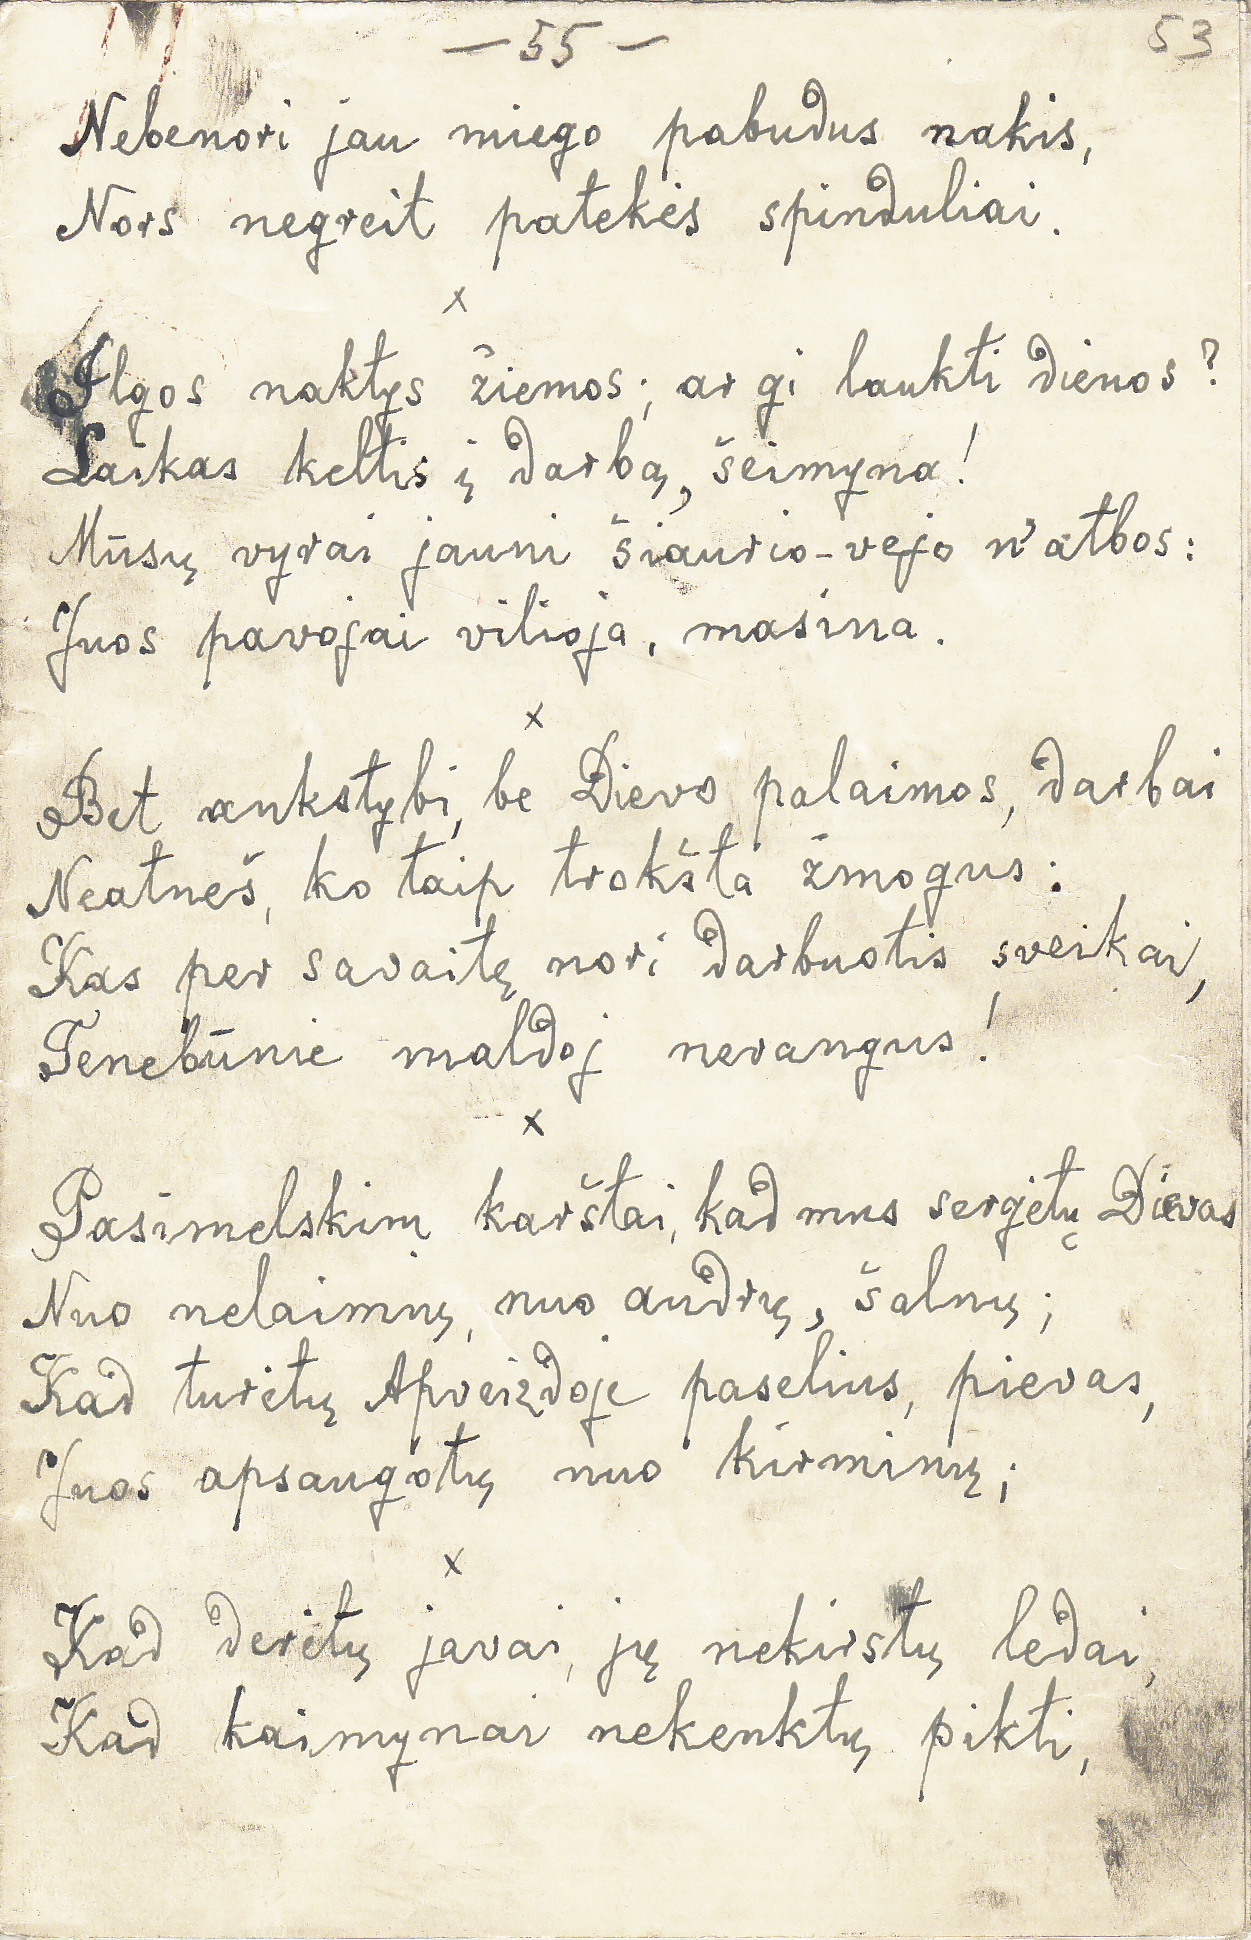 — 55 —
53
Nebenori jau miego pabudus nakis,
Nors negreit patekės spinduliai.
x
Ilgos naktys žiemos; ar gi laukti dienos?
Laikas keltis į darbą, šeimyna!
Mūsų vyrai jauni šiaurio-vejo n'atbos:
Juos pavojai vilioja, masina.
x
Bet ankstybi, be Dievo palaimos, darbai
Neatneš, ko taip trokšta žmogus:
Kas per savaitę nori darbuotis sveikai,
Tenebūnie maldoj nerangus!
x
Pasimelskim karštai, kad mus sergėtų Dievas
Nuo nelaimių, nuo audrų, šalnų;
Kad turėtų Apveizdoje paselius, pievas,
Juos apsaugotų nuo kirminų;
x
Kad derėtų javai, jų nekirstų ledai,
Kad kaimynai nekenktų pikti,